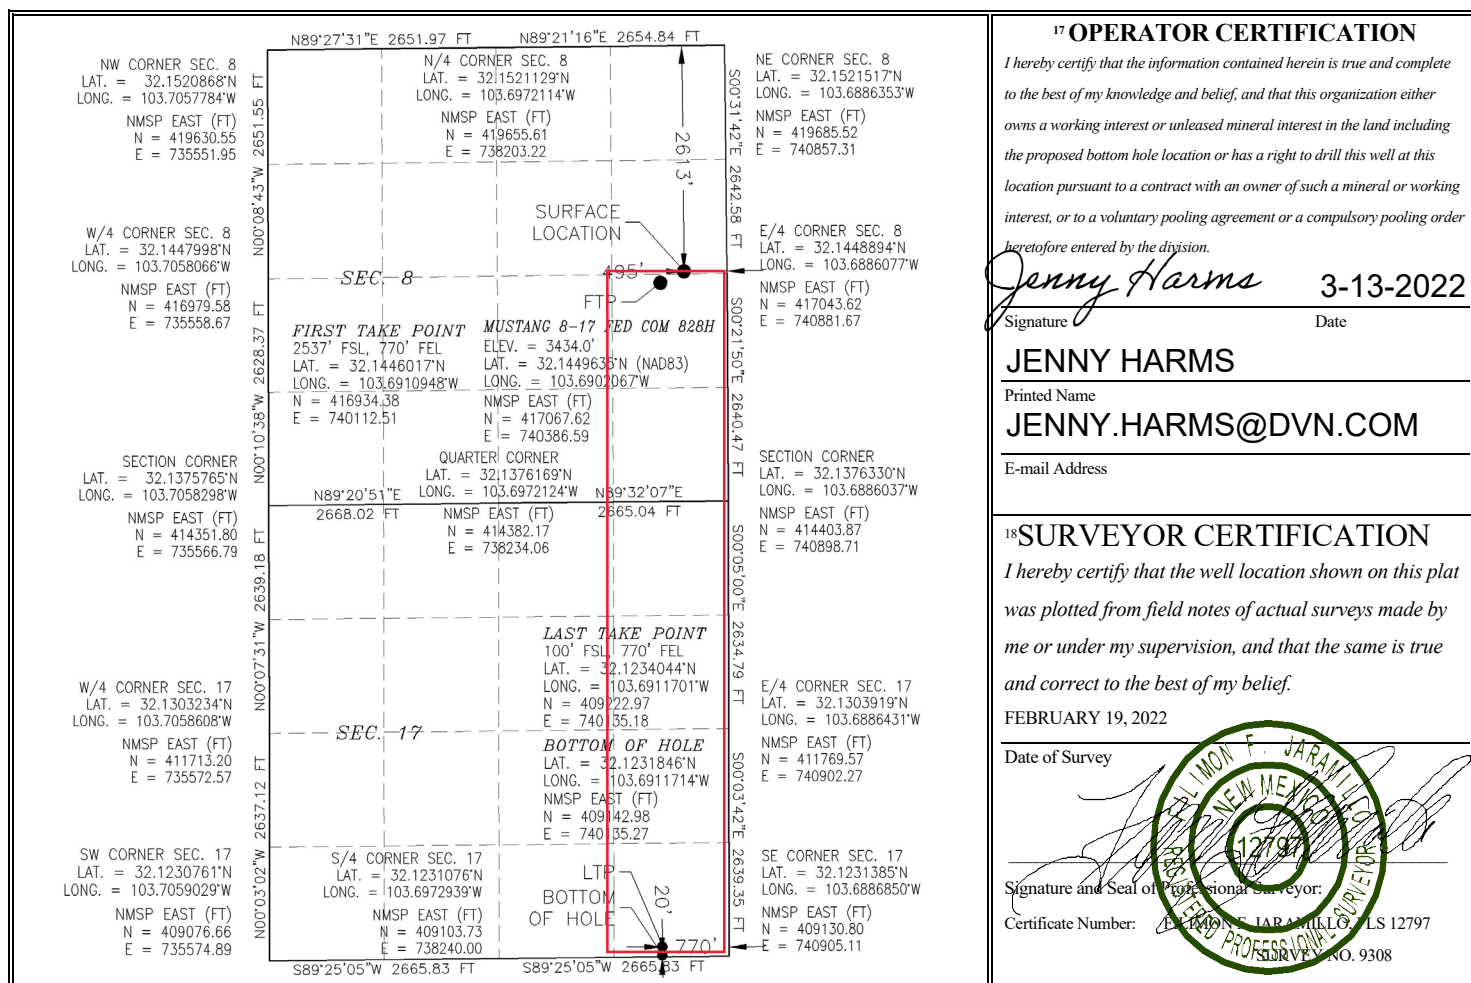 N89°27'31"E 2651.97 FT
N89°21'16"E 2654.84 FT
NW CORNER SEC. 8
LAT. = 32.1520868°N
LONG. = 103.7057784°W
NMSP EAST (FT)
N = 419630.55
E = 735551.95
N/4 CORNER SEC. 8
LAT. = 32.1521129°N
LONG. = 103.6972114°W
NMSP EAST (FT)
N = 419655.61
E = 738203.22
NE CORNER SEC. 8
LAT. = 32.1521517°N
LONG. = 103.6886353°W
NMSP EAST (FT)
N = 419685.52
E = 740857.31
N00°08'43"W 2651.55 FT
S00°31'42"E 2642.58 FT
2613'
SURFACE
LOCATION
W/4 CORNER SEC. 8
LAT. = 32.1447998°N
LONG. = 103.7058066°W
NMSP EAST (FT)
N = 416979.58
E = 735558.67
SEC. 8
495'
FTP
E/4 CORNER SEC. 8
LAT. = 32.1448894°N
LONG. = 103.6886077°W
NMSP EAST (FT)
N = 417043.62
E = 740881.67
FIRST TAKE POINT
2537' FSL, 770' FEL
LAT. = 32.1446017°N
LONG. = 103.6910948°W
N = 416934.38
E = 740112.51
MUSTANG 8-17 FED COM 828H
ELEV. = 3434.0'
LAT. = 32.1449635°N (NAD83)
LONG. = 103.6902067°W
NMSP EAST (FT)
N = 417067.62
E = 740386.59
N00°10'38"W 2628.37 FT
S00°21'50"E 2640.47 FT
SECTION CORNER
LAT. = 32.1375765°N
LONG. = 103.7058298°W
NMSP EAST (FT)
N = 414351.80
E = 735566.79
QUARTER CORNER
LAT. = 32.1376169°N
LONG. = 103.6972124°W
NMSP EAST (FT)
N = 414382.17
E = 738234.06
N89°20'51"E
2668.02 FT
N89°32'07"E
2665.04 FT
SECTION CORNER
LAT. = 32.1376330°N
LONG. = 103.6886037°W
NMSP EAST (FT)
N = 414403.87
E = 740898.71
N00°07'31"W 2639.18 FT
S00°05'00"E 2634.79 FT
LAST TAKE POINT
100' FSL, 770' FEL
LAT. = 32.1234044°N
LONG. = 103.6911701°W
N = 409222.97
E = 740135.18
W/4 CORNER SEC. 17
LAT. = 32.1303234°N
LONG. = 103.7058608°W
NMSP EAST (FT)
N = 411713.20
E = 735572.57
SEC. 17
E/4 CORNER SEC. 17
LAT. = 32.1303919°N
LONG. = 103.6886431°W
NMSP EAST (FT)
N = 411769.57
E = 740902.27
BOTTOM OF HOLE
LAT. = 32.1231846°N
LONG. = 103.6911714°W
NMSP EAST (FT)
N = 409142.98
E = 740135.27
N00°03'02"W 2637.12 FT
S00°03'42"E 2639.35 FT
SW CORNER SEC. 17
LAT. = 32.1230761°N
LONG. = 103.7059029°W
NMSP EAST (FT)
N = 409076.66
E = 735574.89
S/4 CORNER SEC. 17
LAT. = 32.1231076°N
LONG. = 103.6972939°W
NMSP EAST (FT)
N = 409103.73
E = 738240.00
LTP
BOTTOM
OF HOLE
20'
770'
SE CORNER SEC. 17
LAT. = 32.1231385°N
LONG. = 103.6886850°W
NMSP EAST (FT)
N = 409130.80
E = 740905.11
S89°25'05"W 2665.83 FT
S89°25'05"W 2665.83 FT
17 OPERATOR CERTIFICATION
I hereby certify that the information contained herein is true and complete
to the best of my knowledge and belief, and that this organization either
owns a working interest or unleased mineral interest in the land including
the proposed bottom hole location or has a right to drill this well at this
location pursuant to a contract with an owner of such a mineral or working
interest, or to a voluntary pooling agreement or a compulsory pooling order
heretofore entered by the division.
Jenny Harms 3-13-2022
Signature Date
JENNY HARMS
Printed Name
JENNY.HARMS@DVN.COM
E-mail Address
18 SURVEYOR CERTIFICATION
I hereby certify that the well location shown on this plat
was plotted from field notes of actual surveys made by
me or under my supervision, and that the same is true
and correct to the best of my belief.
FEBRUARY 19, 2022
Date of Survey
FILIMON F. JARAMILLO
NEW MEXICO
12797
REGISTERED PROFESSIONAL SURVEYOR
Signature and Seal of Professional Surveyor:
Certificate Number: FILIMON F. JARAMILLO, PLS 12797
SURVEY NO. 9308